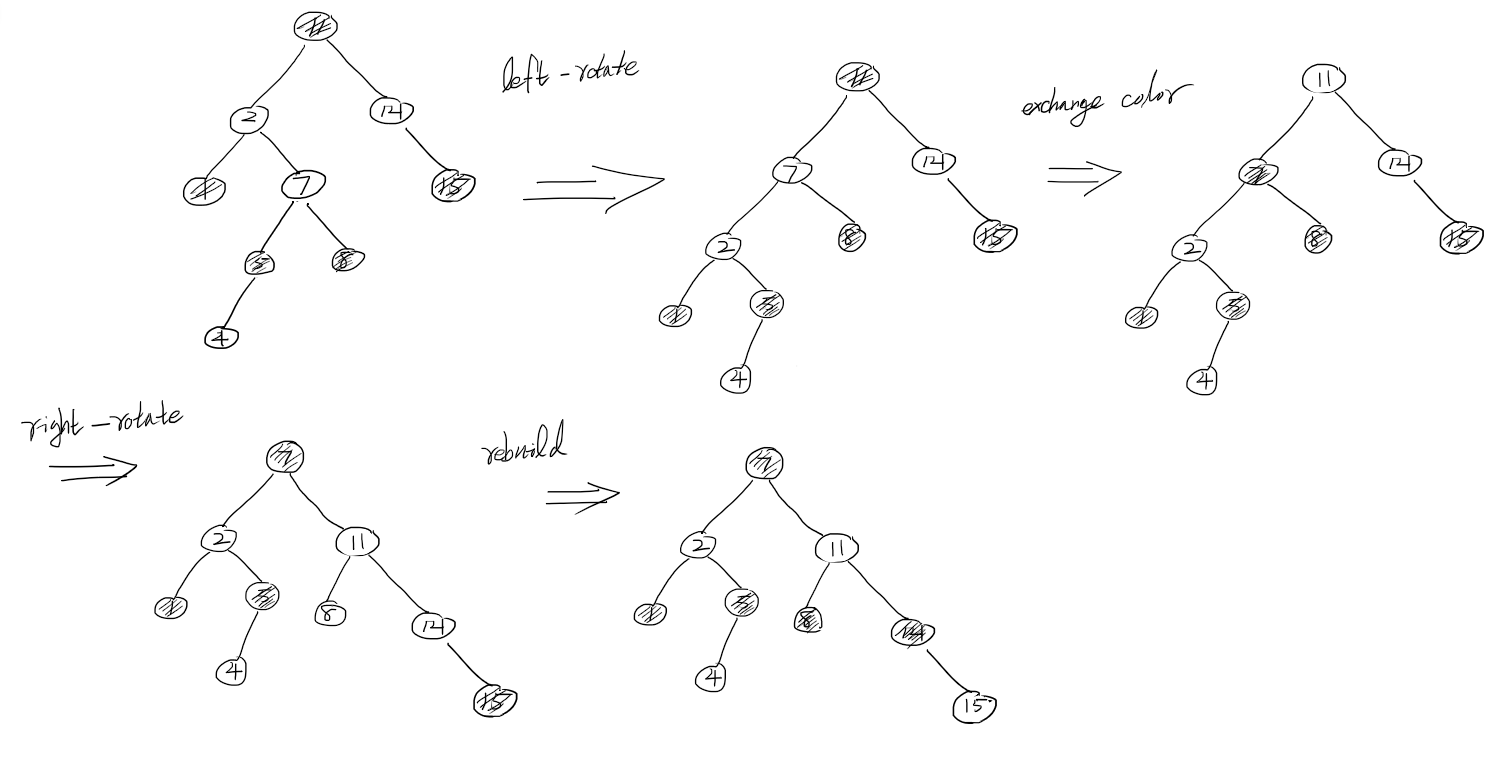 11
left-rotate
2
14
1
7
15
5
8
4
11
7
14
2
8
15
1
5
4
exchange color
11
7
14
2
8
15
1
5
4
right-rotate
7
2
11
1
5
8
14
4
15
rebuild
7
2
11
1
5
8
14
4
15